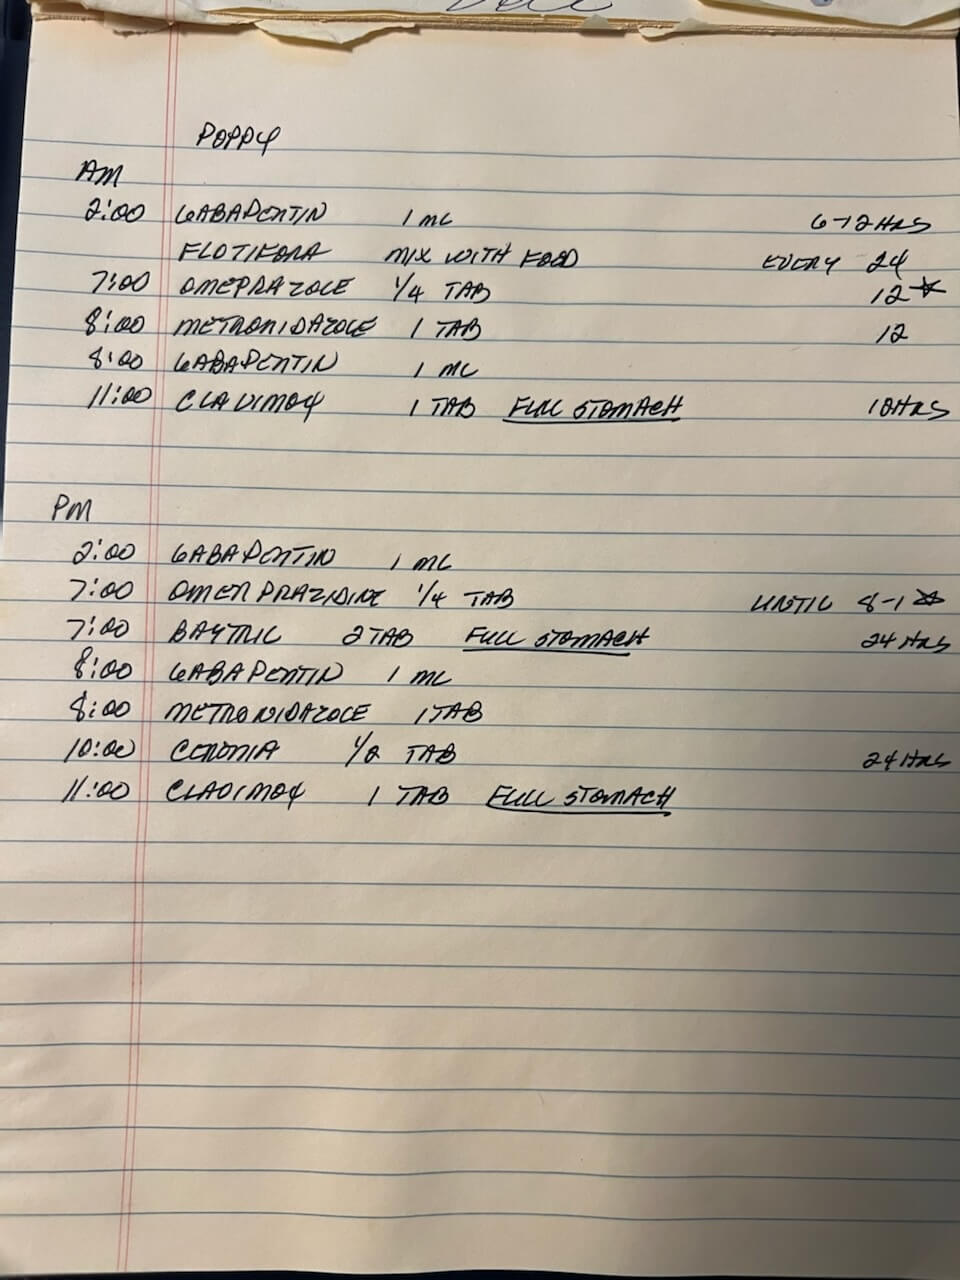 POPPY
AM
2:00 GABAPENTIN 1 ML 6-12 HRS
FLOTIFORA MIX WITH FOOD EVERY 24
7:00 OMEPRAZOLE 1/4 TAB 12 ☆
8:00 METRONIDAZOLE 1 TAB 12
8:00 GABAPENTIN 1 ML
11:00 CLAVIMOX 1 TAB FULL STOMACH HRS
PM
2:00 GABAPENTIN 1 ML
7:00 OMENPRAZIDINE 1/4 TAB UNTIL 8-1 ☆
7:00 BAYTRIL 2 TAB FULL STOMACH 24 HRS
8:00 GABAPENTIN 1 ML
8:00 METRONIDAZOLE 1 TAB
10:00 CERENIA 1/2 TAB 24 HRS
11:00 CLAVIMOX 1 TAB FULL STOMACH